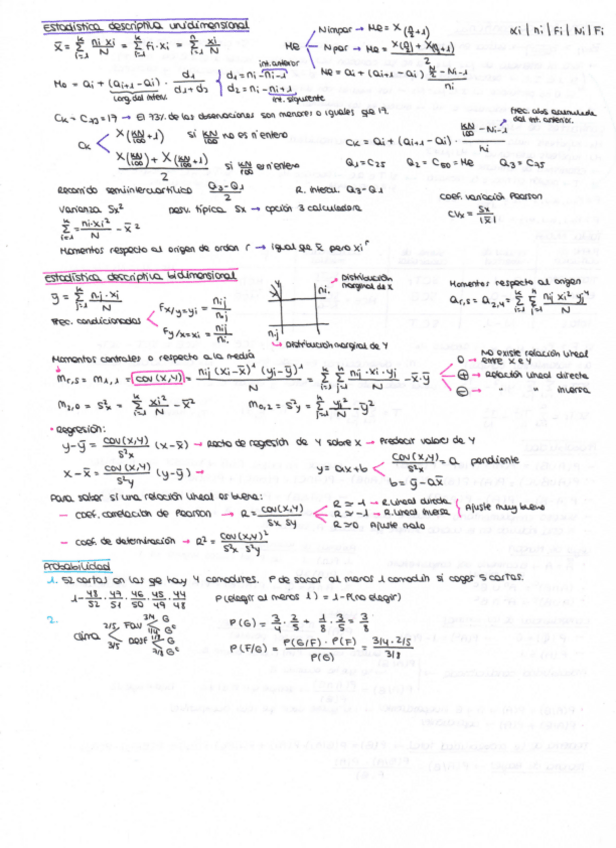 Estadística descriptiva unidimensional
x̄ = Σ ni xi / N = Σ fi · xi = Σ xi / N
Me
N impar → Me = X(n/2+1)
N par → Me = X(n/2) + X(n/2+1) / 2
Me = ai + (ai+1 - ai) N/2 - Ni-1 / ni
xi | ni | Fi | Ni | Fi
Mo = ai + (ai+1 - ai) · d1 / d1 + d2
Long. del interv.
int. anterior
d1 = ni - ni-1
d2 = ni - ni+1
int. siguiente
Ck = C73 = 19 → El 73% de las observaciones son menores o iguales que 19.
frec. abs acumulada del int. anterior.
Ck
X(KN/100 + 1) si KN/100 no es nº entero
X(KN/100) + X(KN/100 + 1) / 2 si KN/100 es nº entero
Ck = ai + (ai+1 - ai) · KN/100 - Ni-1 / ni
Q1 = C25 Q2 = C50 = Me Q3 = C75
Recorrido semiintercuartílico Q3 - Q1 / 2 R. intercu. Q3 - Q1
coef. variación Pearson
CVx = Sx / |x̄|
Varianza Sx² Desv. típica Sx → opción 3 calculadora
Σ ni · xi² / N - x̄²
Momentos respecto al origen de orden r → igual que x̄ pero xi^r
Estadística descriptiva bidimensional
ȳ = Σ nj · xi / N
Frec. condicionadas
Fx/y=yi = nij / n.j
Fy/x=xi = nij / ni.
Distribución marginal de x
ni.
n.j
Distribución marginal de Y
Momentos respecto al origen
ar,s = a2,4 = Σ Σ nij xi² yj⁴ / N
Momentos centrales o respecto a la media
mr,s = m1,1 = cov(x,y) = nij (xi - x̄)¹ (yj - ȳ)¹ / N = Σ Σ nij · xi · yj / N - x̄ · ȳ
0 → No existe relación lineal entre x e y
+ → Relación lineal directa
- → " " inversa
m2,0 = s²x = Σ xi² / N - x̄² m0,2 = s²y = Σ yj² / N - ȳ²
• Regresión:
y - ȳ = cov(x,y) / s²x (x - x̄) → Recta de regresión de Y sobre x → Predecir valores de Y
x - x̄ = cov(x,y) / s²y (y - ȳ) →
y = ax + b
cov(x,y) / s²x = a pendiente
b = ȳ - a x̄
Para saber si una relación lineal es buena:
- coef. correlación de Pearson → R = cov(x,y) / Sx Sy
R ≈ 1 → R. lineal directa
R ≈ -1 → R. lineal inversa
Ajuste muy bueno
R ≈ 0 Ajuste malo
- coef. de determinación → R² = cov(x,y)² / s²x s²y
Probabilidad
1. 52 cartas en las que hay 4 comodines. P de sacar al menos 1 comodín si coges 5 cartas.
1 - 48/52 · 47/51 · 46/50 · 45/49 · 44/48 P(elegir al menos 1) = 1 - P(no elegir)
2.
Clima
2/5 Fav 3/4 G 1/4 Gᶜ
3/5 Desf 1/8 G 7/8 Gᶜ
P(G) = 3/4 · 2/5 + 1/8 · 3/5 = 3/8
P(F/G) = P(G/F) · P(F) / P(G) = 3/4 · 2/5 / 3/8